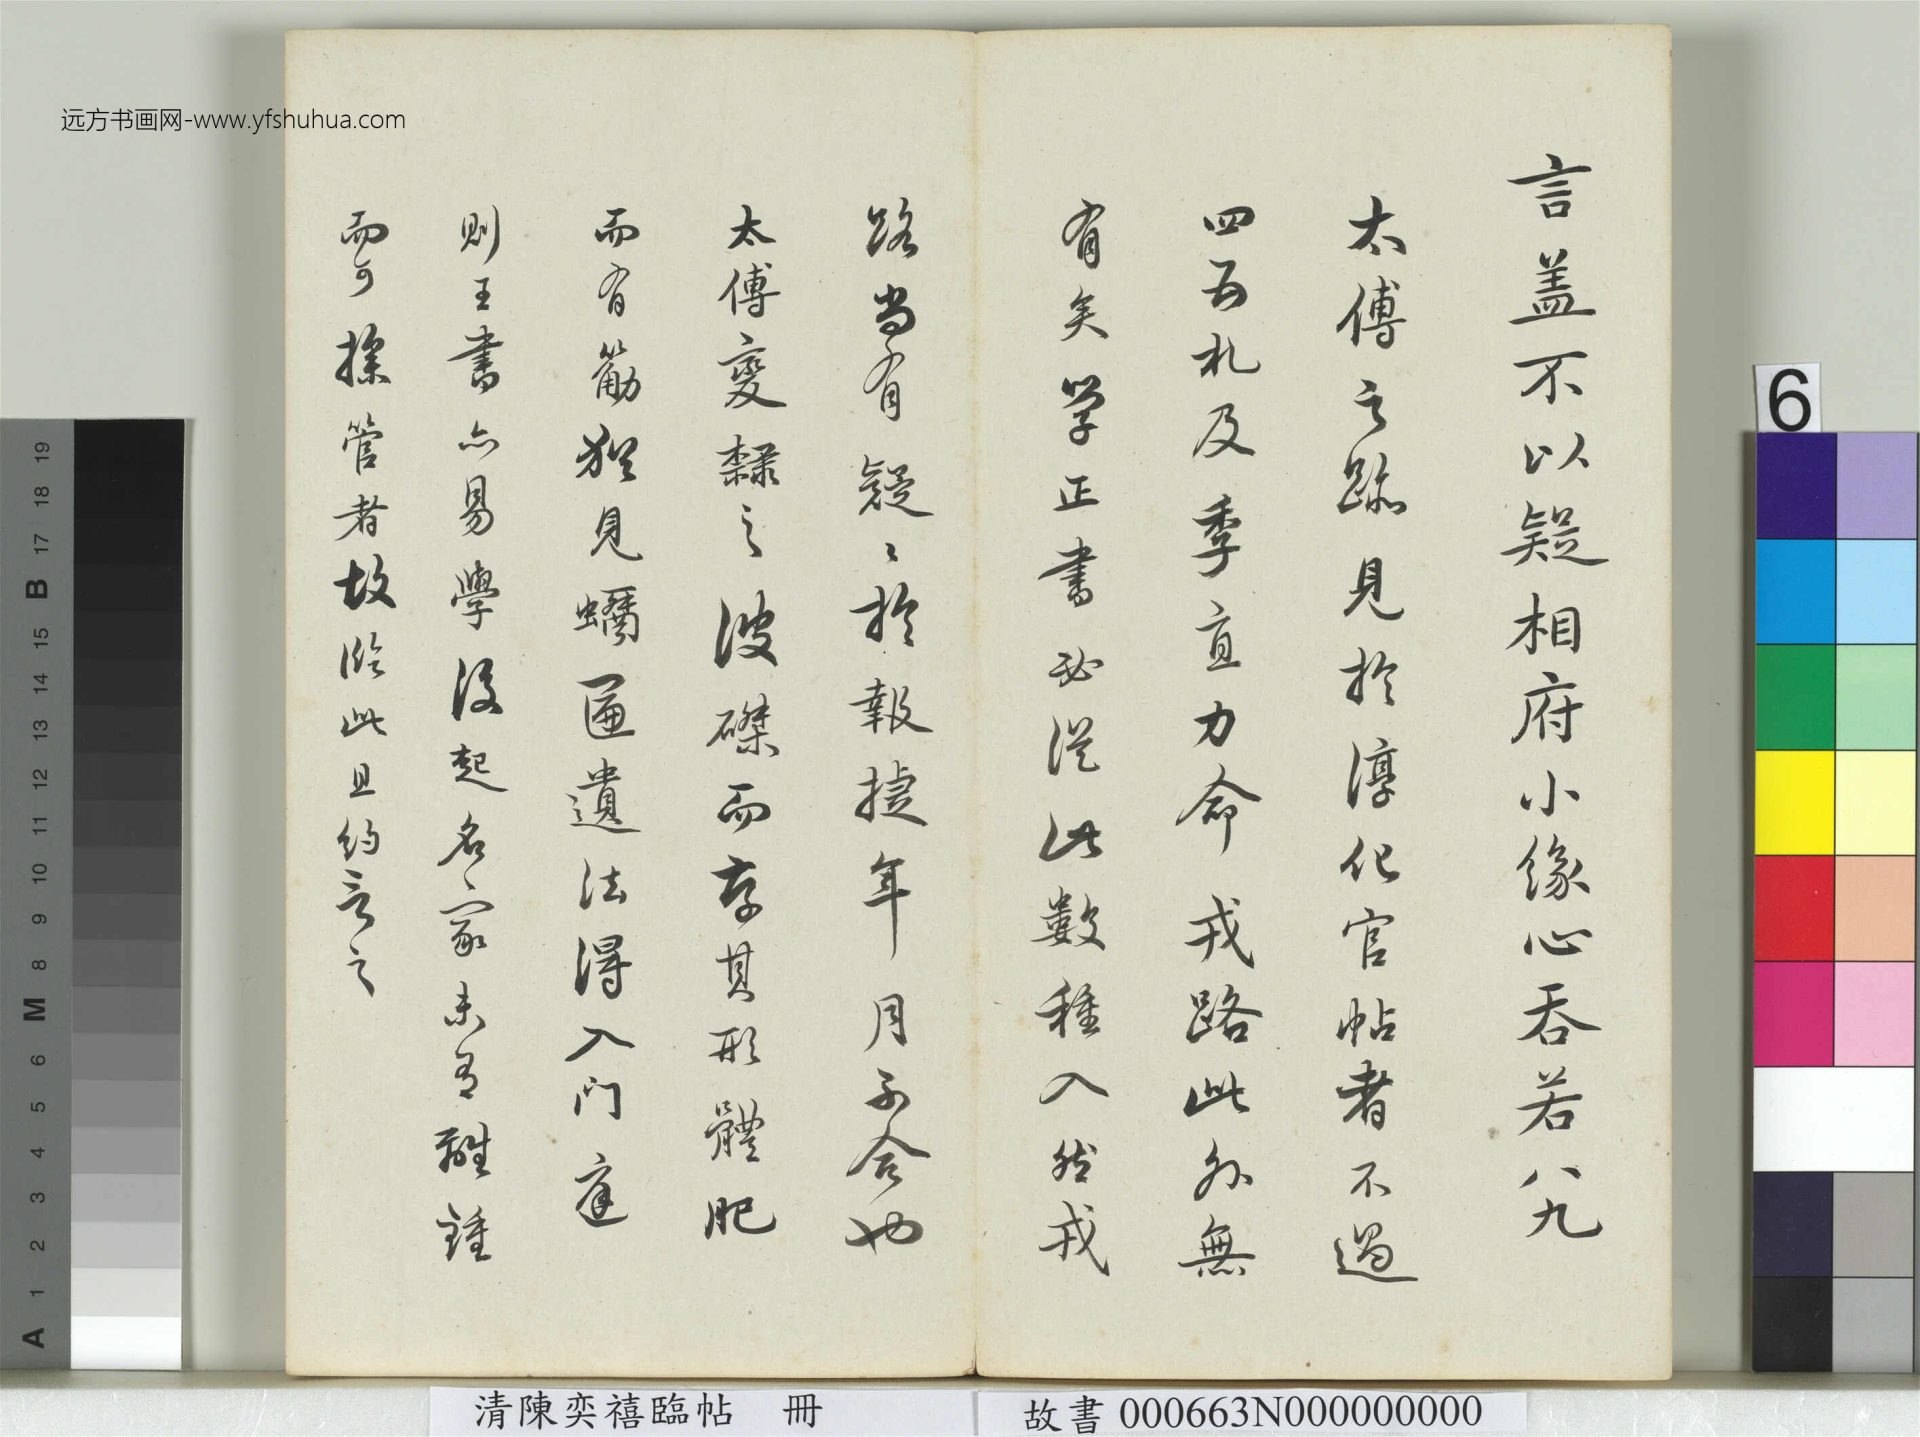 远方书画网-www.yfshuhua.com
言盖不以疑相府小缘心吞若八九
太傅之跡見於淳化官帖者不過
四五札及季直力命戎路此外無
有矣学正書必從此數種入然戎
路尚有疑〻於報捷年月不合也
太傅變隸之波磔而存其形體肥
而有筋犹見蠣匾遺法得入門庭
則王書亦易學後起名家未有離鍾
而可操管者故臨此且約言之
6
19
18
17
B
15
14
13
12
11
10
9
8
M
6
5
4
3
2
1
A
清陳奕禧臨帖 冊
故書 000663N000000000